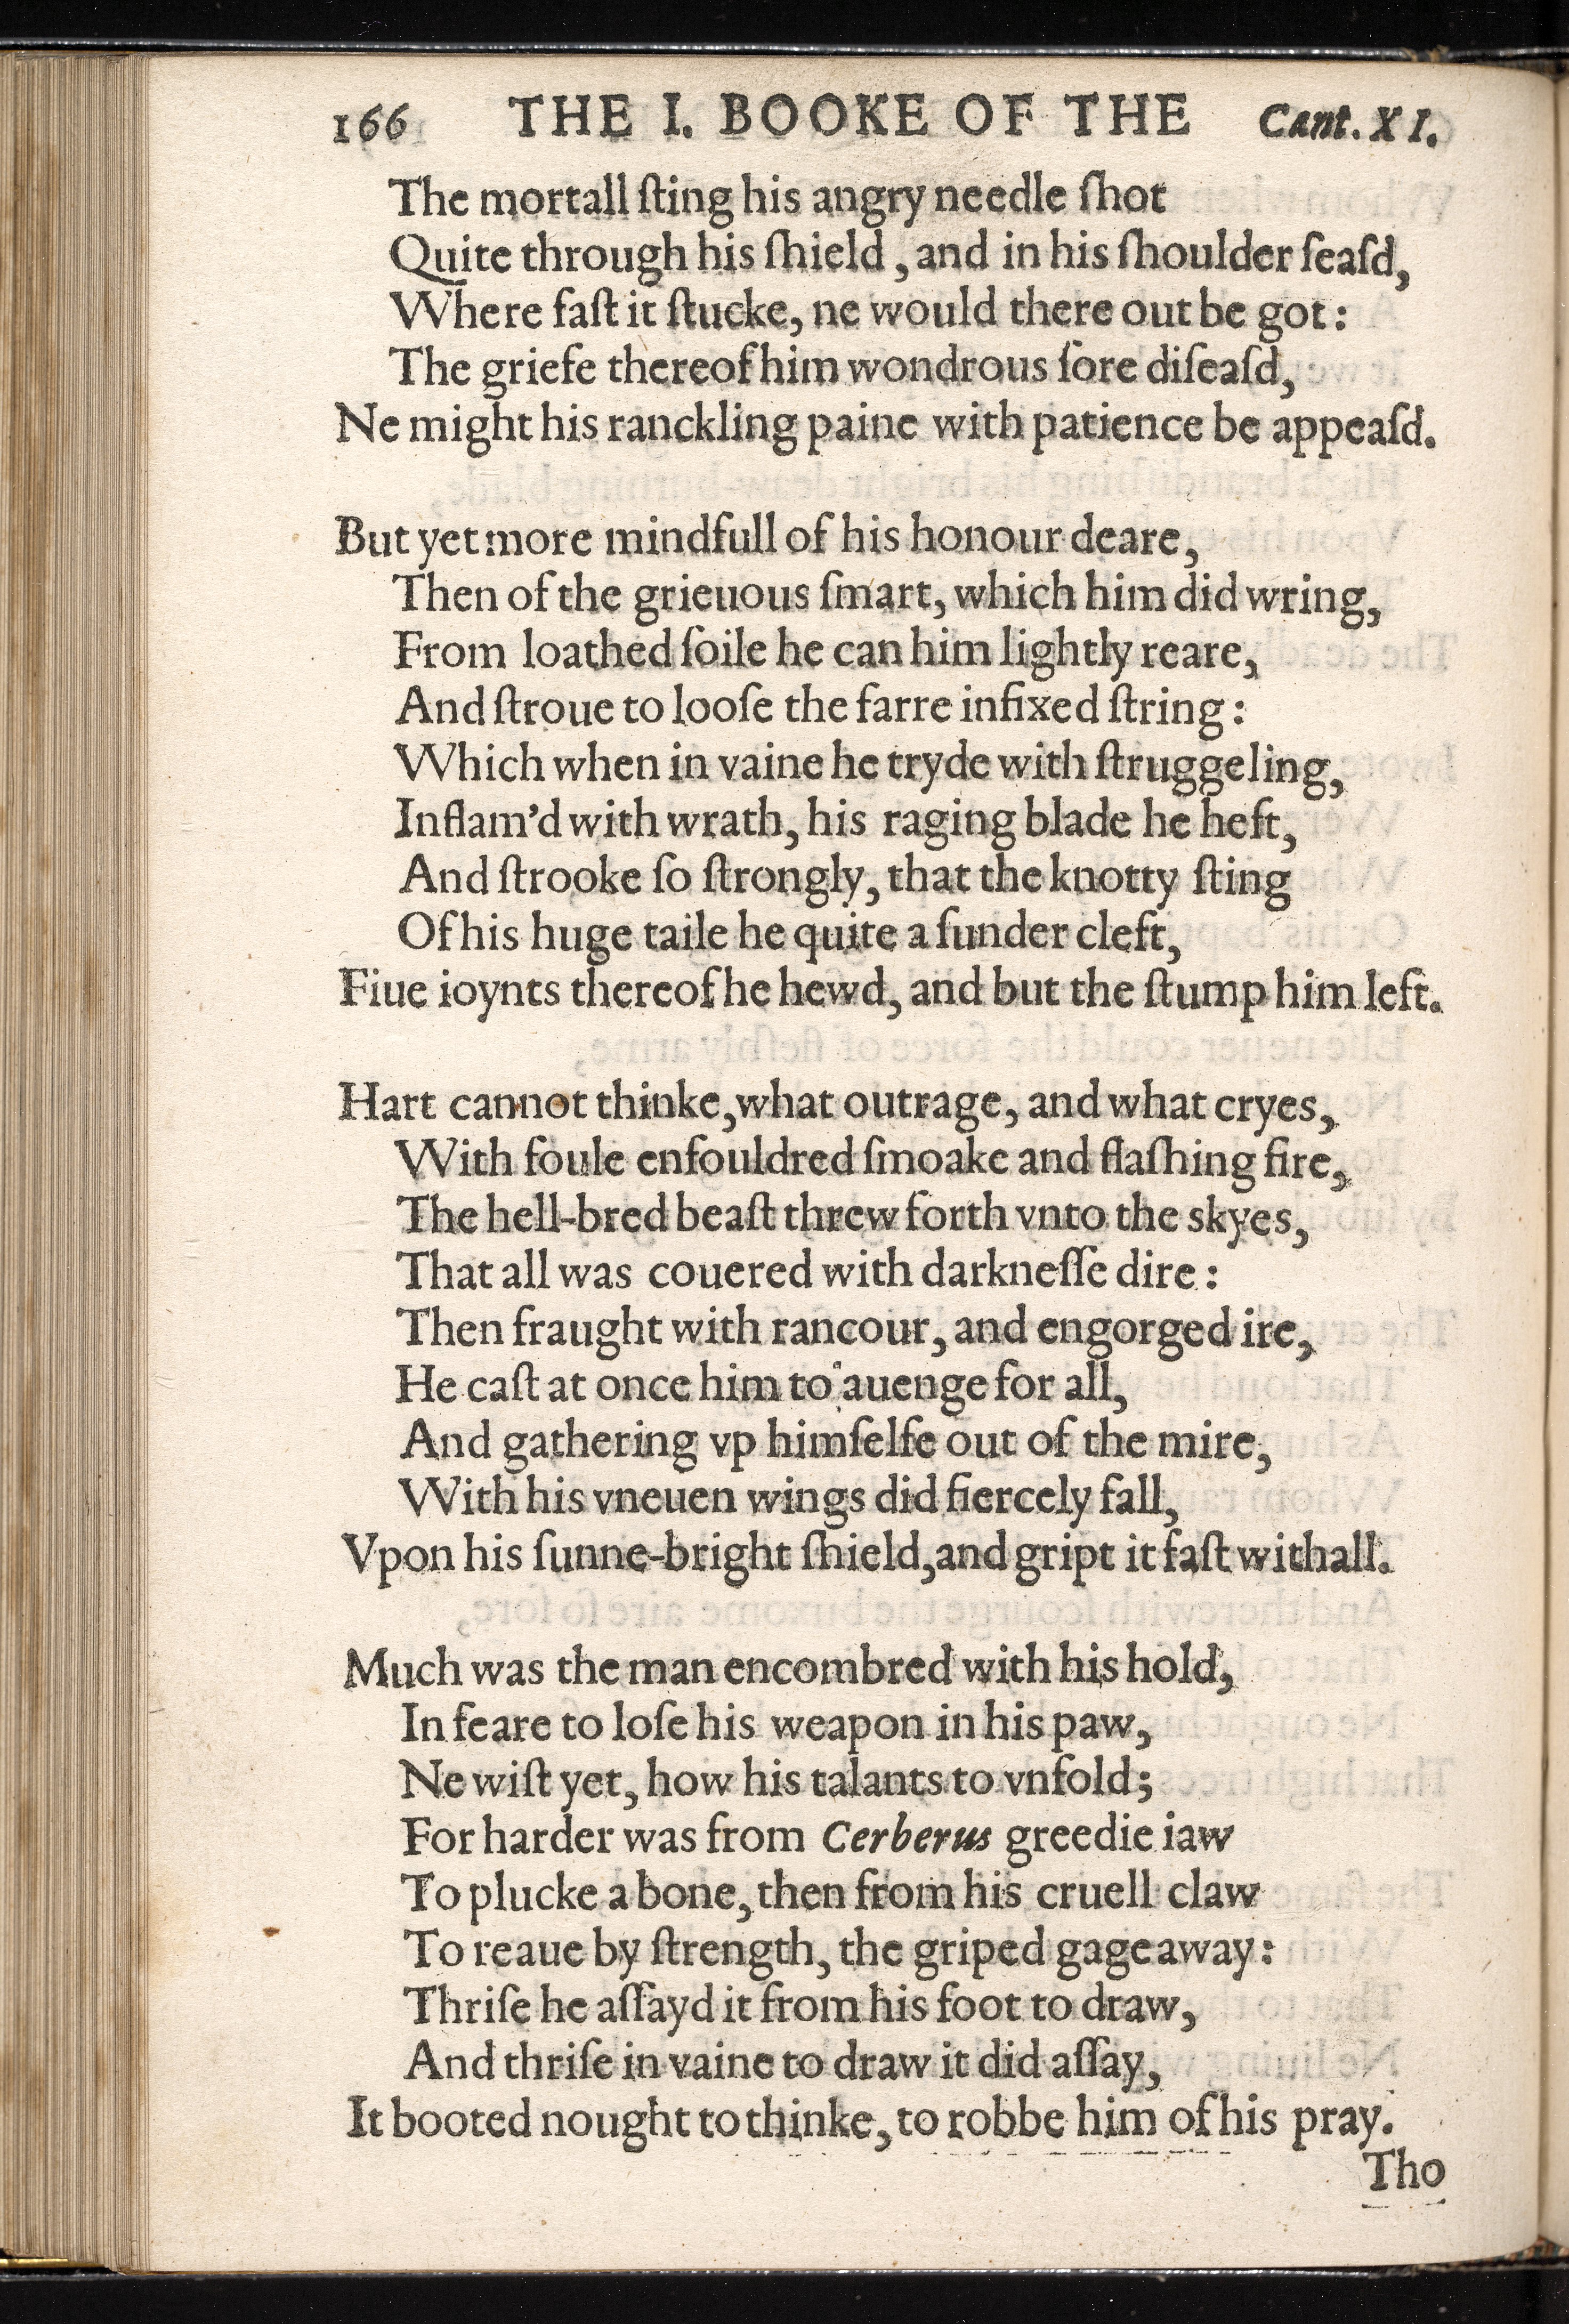 166 THE I. BOOKE OF THE Cant. XI.
The mortall ſting his angry needle ſhot
Quite through his ſhield, and in his ſhoulder ſeaſd,
Where faſt it ſtucke, ne would there out be got:
The griefe thereof him wondrous ſore diſeaſd,
Ne might his ranckling paine with patience be appeaſd.
But yet more mindfull of his honour deare,
Then of the grieuous ſmart, which him did wring,
From loathed ſoile he can him lightly reare,
And ſtroue to looſe the farre infixed ſtring:
Which when in vaine he tryde with ſtruggeling,
Inflam'd with wrath, his raging blade he heft,
And ſtrooke ſo ſtrongly, that the knotty ſting
Of his huge taile he quite a ſunder cleft,
Fiue ioynts thereof he hewd, and but the ſtump him left.
Hart cannot thinke, what outrage, and what cryes,
With foule enfouldred ſmoake and flaſhing fire,
The hell-bred beaſt threw forth vnto the skyes,
That all was couered with darkneſſe dire:
Then fraught with rancour, and engorged ire,
He caſt at once him to auenge for all,
And gathering vp himſelfe out of the mire,
With his vneuen wings did fiercely fall,
Vpon his ſunne-bright ſhield, and gript it faſt withall.
Much was the man encombred with his hold,
In feare to loſe his weapon in his paw,
Ne wiſt yet, how his talants to vnfold;
For harder was from Cerberus greedie iaw
To plucke a bone, then from his cruell claw
To reaue by ſtrength, the griped gage away:
Thriſe he aſſayd it from his foot to draw,
And thriſe in vaine to draw it did aſſay,
It booted nought to thinke, to robbe him of his pray.
Tho